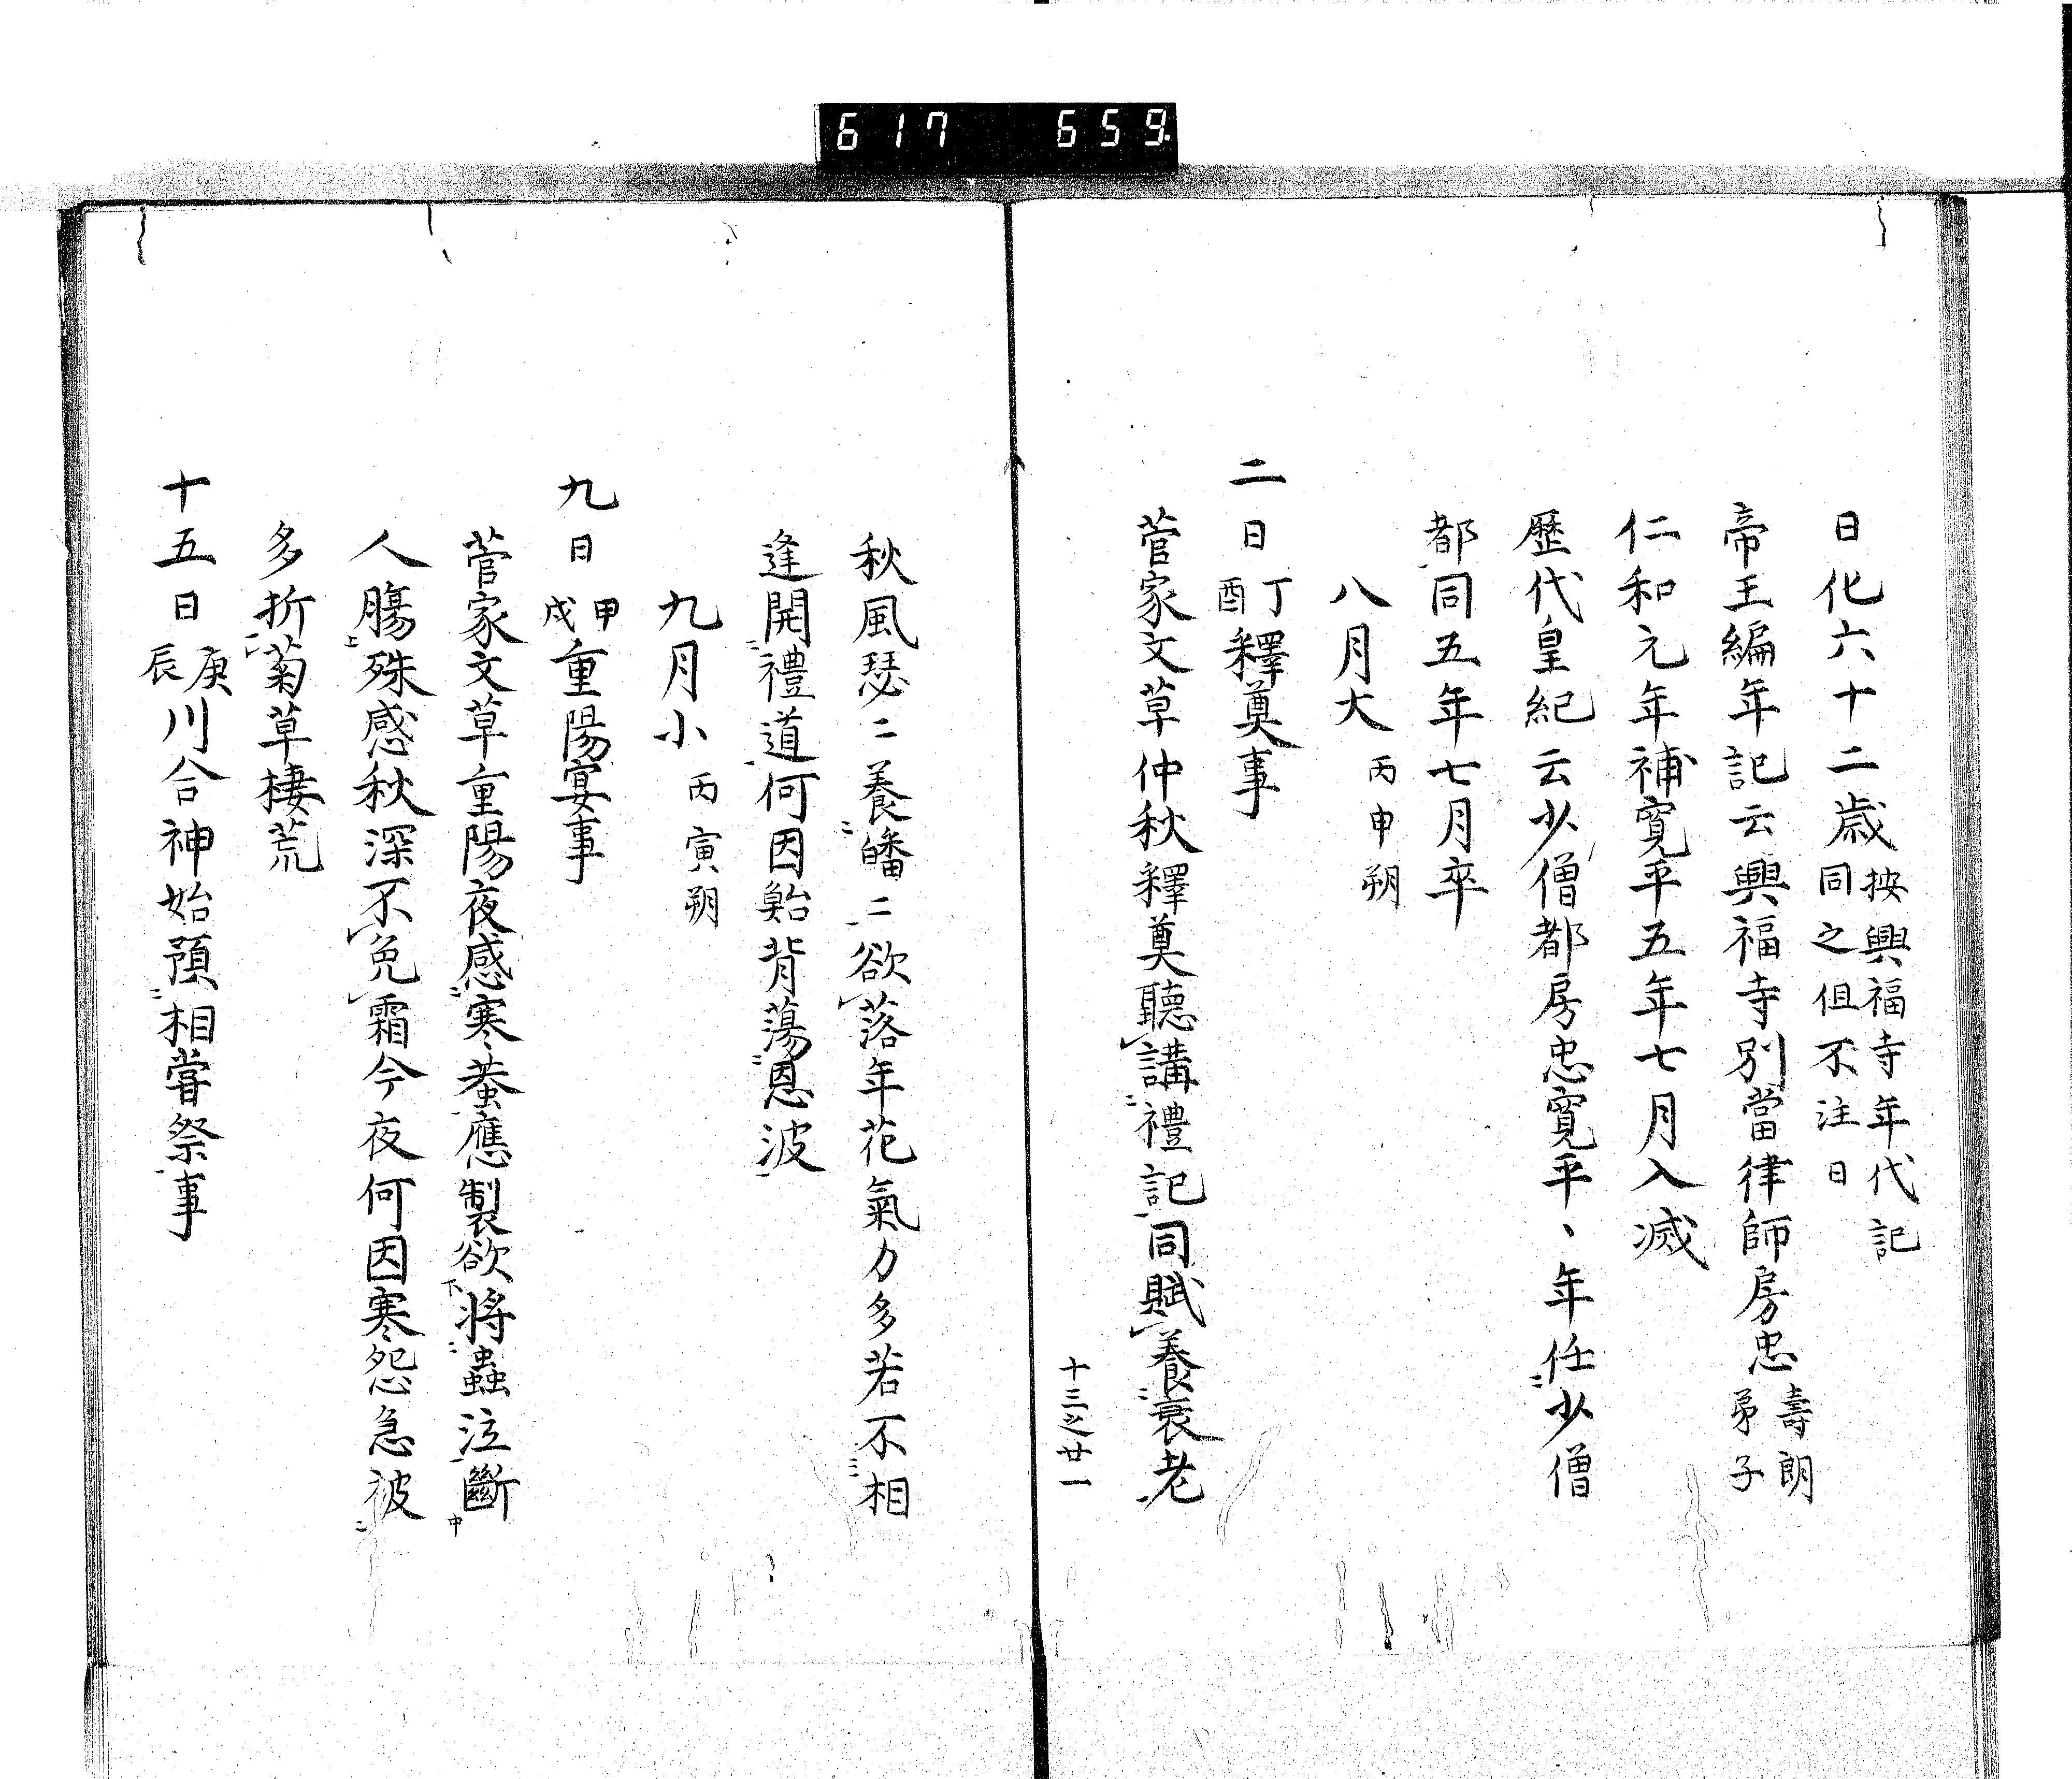 617 659
日化六十二歳按興福寺年代記同之但不注日
帝王編年記云興福寺別當律師房忠壽朗弟子
仁和元年補寛平五年七月入滅
歴代皇紀云少僧都房忠寛平、年任二少僧
都一同五年七月卒
八月大丙申朔
二日丁酉釋奠事
菅家文草仲秋釋奠聽レ講二禮記一同賦レ養二衰老一
十三之廿一
秋風瑟二養二皤二一欲レ落年花氣力多若不三相
逢開二禮道一何因鮐背蕩二恩波一
九月小丙寅朔
九日甲戌重陽宴事
菅家文草重陽夜感二寒蛬一應製欲下將二蟲泣一斷中
人膓上殊感秋深不レ免レ霜今夜何因寒怨急被二
多折一菊草棲荒
十五日庚辰川合神始預二相甞祭一事